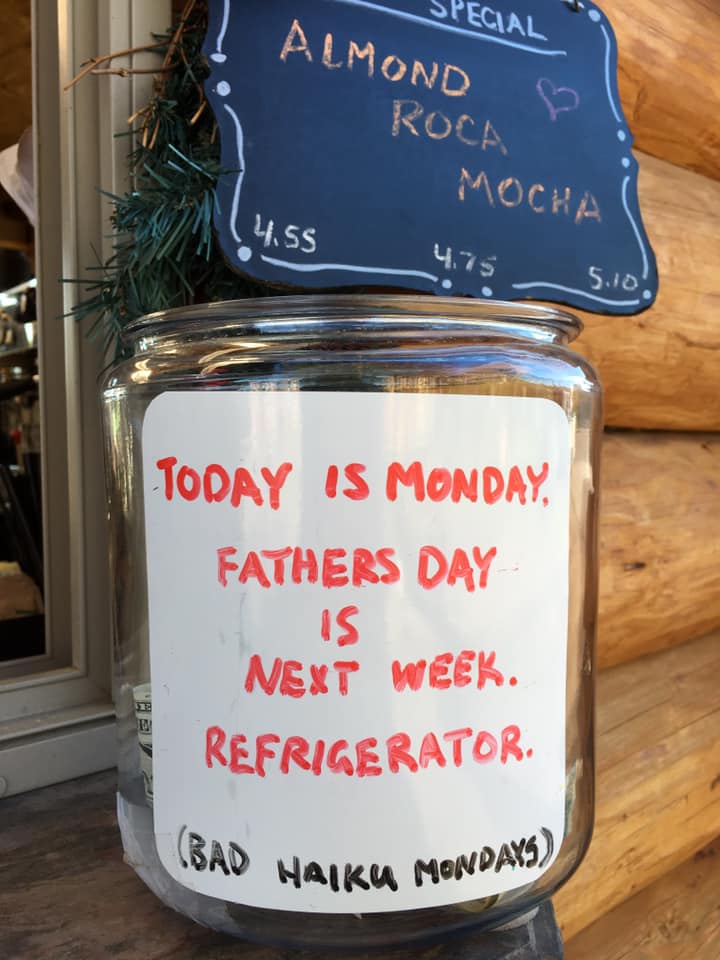 SPECIAL
ALMOND
ROCA
MOCHA
4.55 4.75 5.10
TODAY IS MONDAY.
FATHERS DAY
IS
NEXT WEEK.
REFRIGERATOR.
(BAD HAIKU MONDAYS)